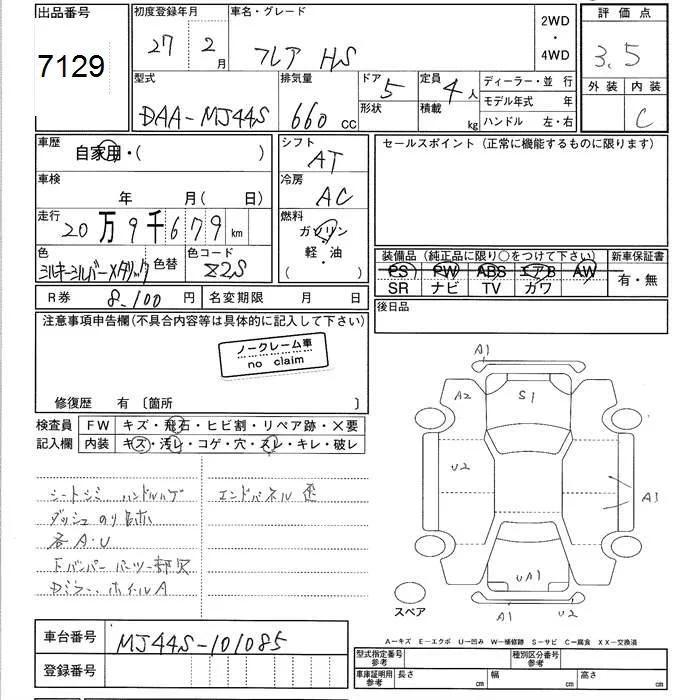 出品番号
7129
初度登録年月
27 2 月
車名・グレード
フレア HS
2WD
・
4WD
評価点
3.5
外装 内装
C
型式
DAA-MJ44S
排気量
660 cc
ドア 5
形状
定員 4 人
積載 kg
ディーラー・並 行
モデル年式 年
ハンドル 左・右
車歴
自家用・( )
シフト
AT
セールスポイント (正常に機能するものに限ります)
車検
年 月( 日)
冷房
AC
走行
20 万 9 千 6 7 9 km
燃料
ガソリン
軽・油
( )
色
シルキーシルバーメタリック
色替
色コード
Z2S
装備品 (純正品に限り○をつけて下さい)
PS PW ABS エアB AW
SR ナビ TV カワ
新車保証書
有・無
R券 8,100 円
名変期限 月 日
後日品
注意事項申告欄(不具合内容等は具体的に記入して下さい)
ノークレーム車
no claim
修復歴 有 〔箇所 〕
検査員
記入欄
FW キズ・飛石・ヒビ割・リペア跡・×要
内装 キズ・汚レ・コゲ・穴・スレ・キレ・破レ
シートシミ ハンドルハゲ
ダッシュのり跡
各A・U
Fバンパー パーツ一部欠
Dミラー、ホイールA
エンドパネル 歪
A1
A2
S1
U2
A3
UA1
A1
U2
スペア
A-キズ E-エクボ U-凹み W-補修跡 S-サビ C-腐食 XX-交換済
車台番号 MJ44S-101085
登録番号
型式指定番号
参考
種別区分番号
参考
車庫証明用
参考
長さ cm
幅 cm
高さ cm